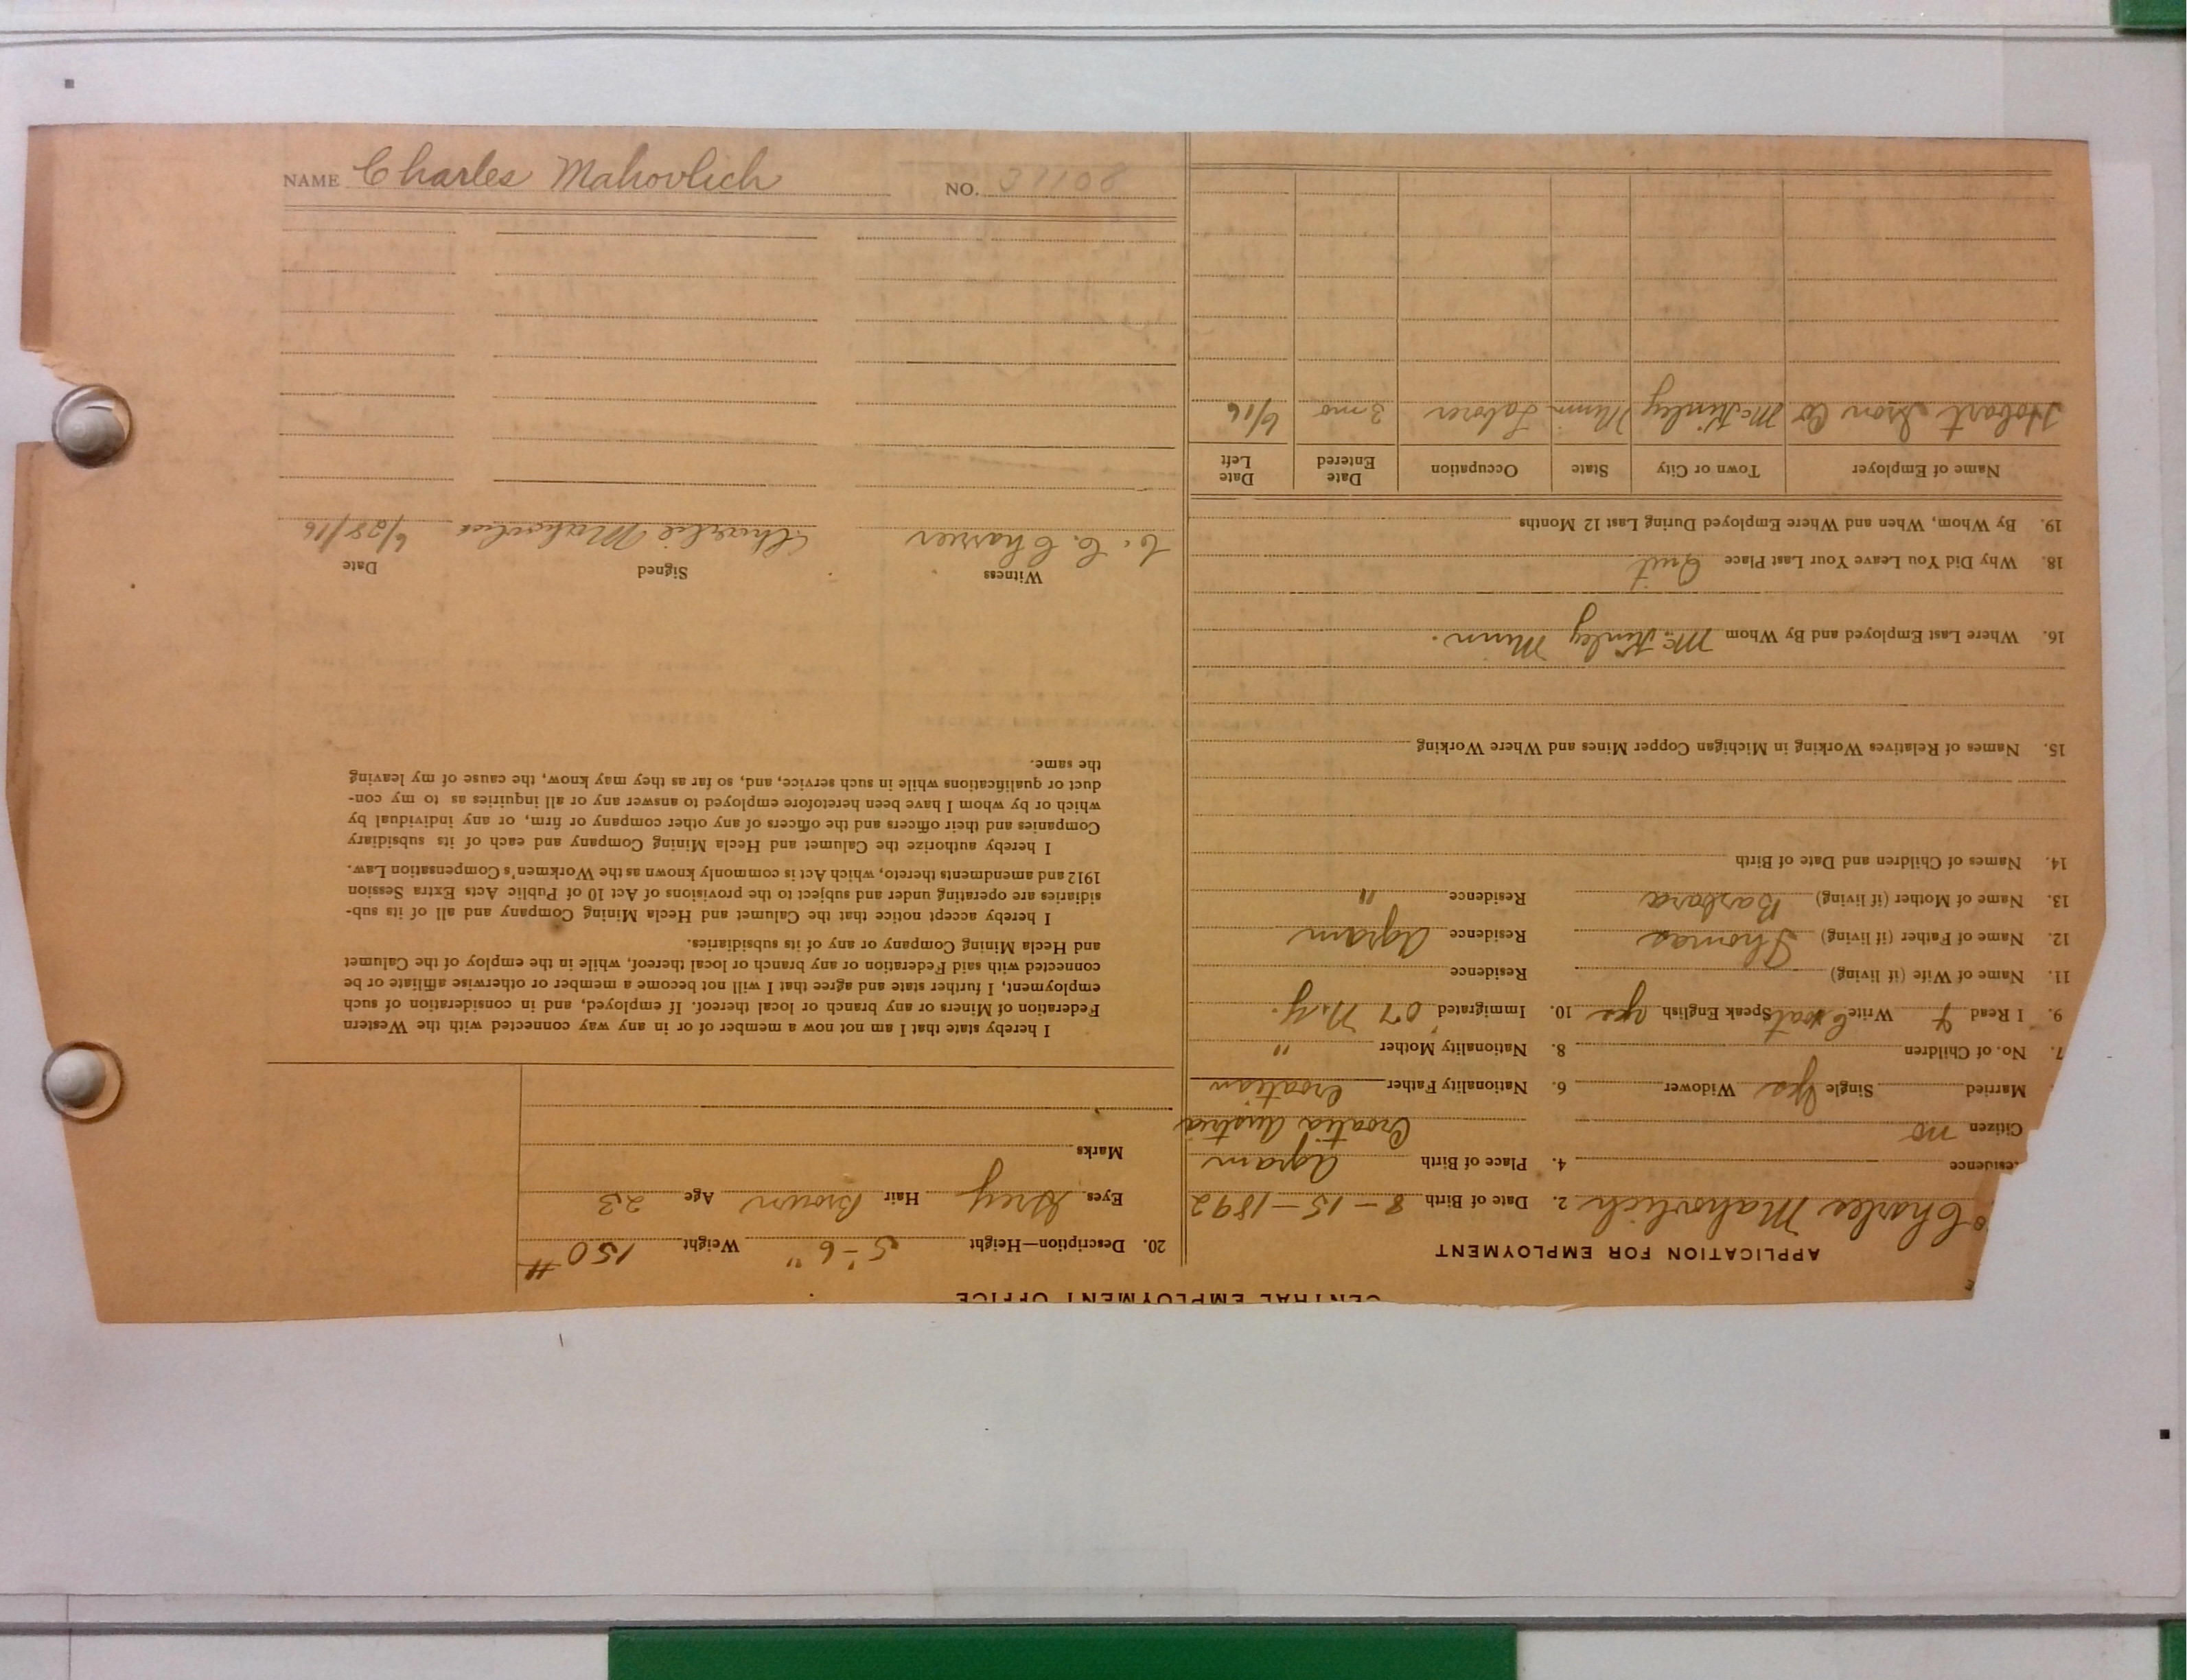 NAME Charles Mahovlich NO. 31108
CENTRAL EMPLOYMENT OFFICE
APPLICATION FOR EMPLOYMENT
Charles Mahovlich 2. Date of Birth 8-15-1892
esidence 4. Place of Birth Agram
Citizen no Croatia Austria
Married Single Yes Widower 6. Nationality Father Croatian
7. No. of Children 8. Nationality Mother "
9. I Read & Write Croat Speak English yes 10. Immigrated 07 N.Y.
11. Name of Wife (if living) Residence
12. Name of Father (if living) Thomas Residence Agram
13. Name of Mother (if living) Barbara Residence "
14. Names of Children and Date of Birth
15. Names of Relatives Working in Michigan Copper Mines and Where Working
16. Where Last Employed and By Whom McKinley Minn.
18. Why Did You Leave Your Last Place Quit
19. By Whom, When and Where Employed During Last 12 Months
Name of Employer Town or City State Occupation Date Entered Date Left
Hobart Iron Co McKinley Minn Laborer 3 mo 6/16
20. Description—Height 5'-6" Weight 150#
Eyes Grey Hair Brown Age 23
Marks
I hereby state that I am not now a member of or in any way connected with the Western
Federation of Miners or any branch or local thereof. If employed, and in consideration of such
employment, I further state and agree that I will not become a member or otherwise affiliate or be
connected with said Federation or any branch or local thereof, while in the employ of the Calumet
and Hecla Mining Company or any of its subsidiaries.
I hereby accept notice that the Calumet and Hecla Mining Company and all of its sub-
sidiaries are operating under and subject to the provisions of Act 10 of Public Acts Extra Session
1912 and amendments thereto, which Act is commonly known as the Workmen's Compensation Law.
I hereby authorize the Calumet and Hecla Mining Company and each of its subsidiary
Companies and their officers and the officers of any other company or firm, or any individual by
which or by whom I have been heretofore employed to answer any or all inquiries as to my con-
duct or qualifications while in such service, and, so far as they may know, the cause of my leaving
the same.
Witness Signed Date
C. C. Charrier Charlie Mahovlich 6/28/16